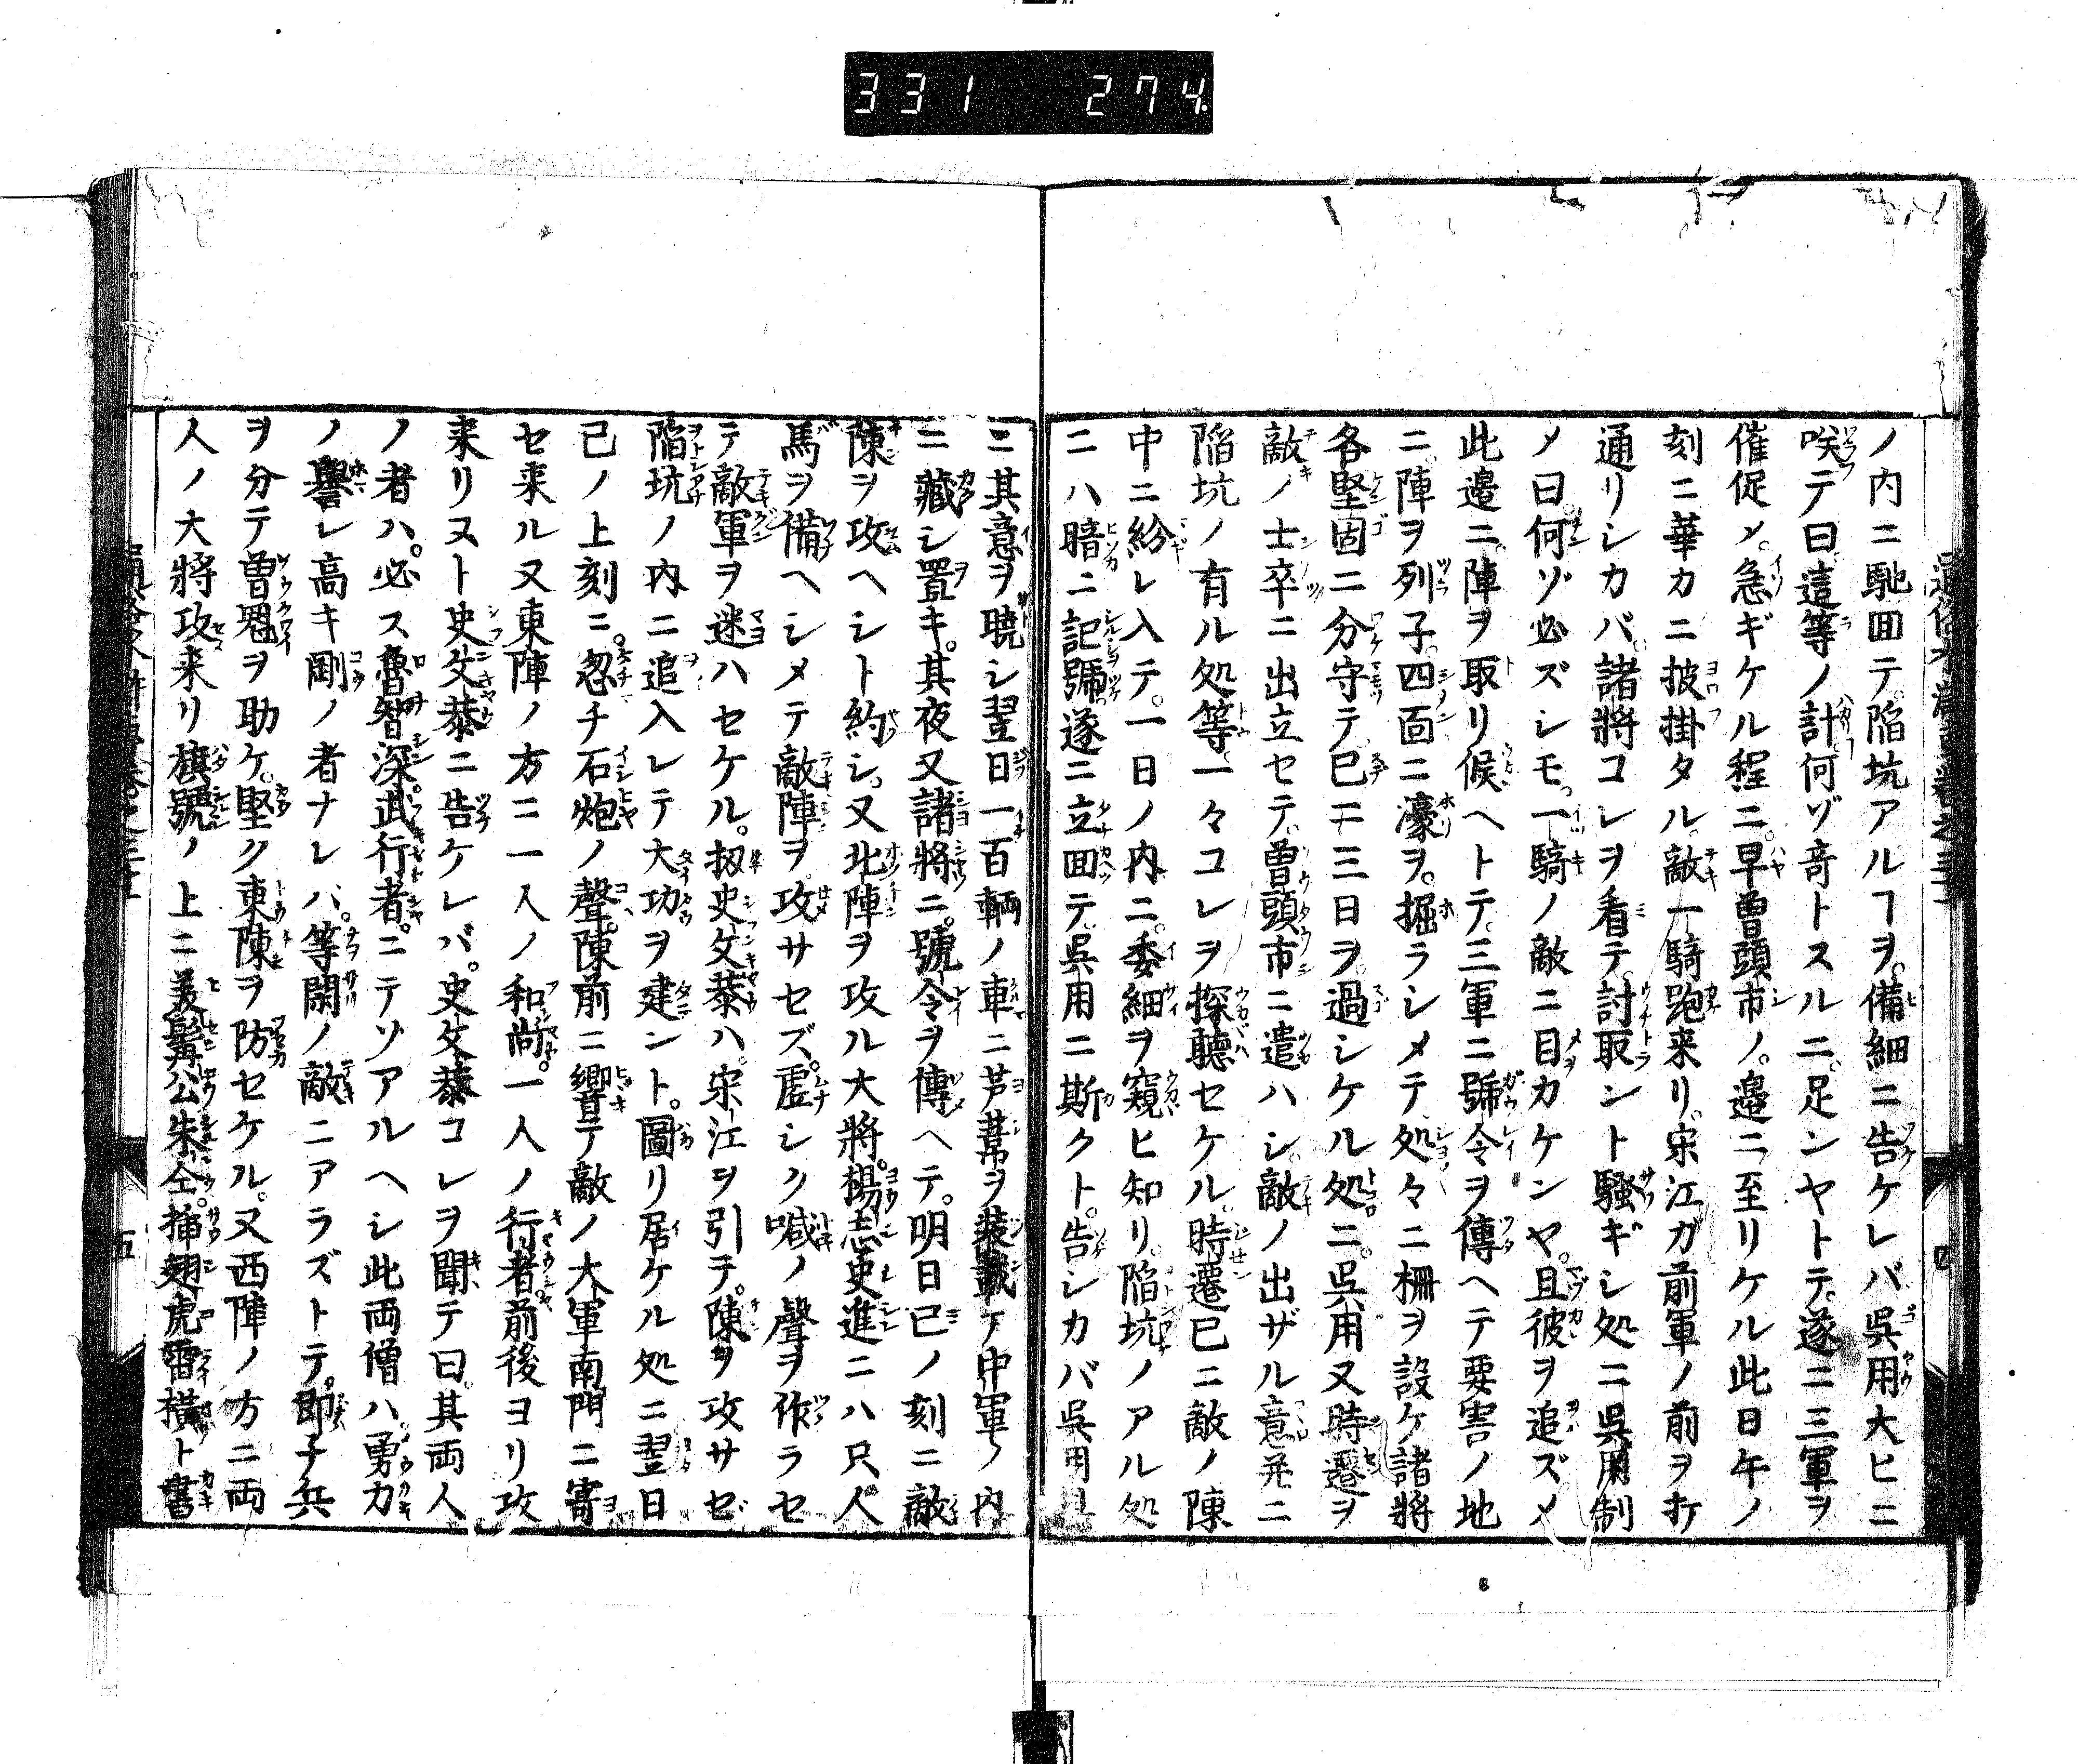 331 274
ノ内ニ馳回テ陥坑アルヿヲ。備細ニ告ケレバ呉用大ヒニ
咲テ曰這等ノ計何ゾ奇トスルニ足ンヤトテ。遂ニ三軍ヲ
催促メ。急ギケル程ニ。早曽頭市ノ。邉ニ至リケル此日午ノ
刻ニ華カニ披掛タル。敵一騎跑来リ。宋江ガ前軍ノ前ヲ打
通リシカバ。諸將コレヲ看テ。討取ントト騒ギシ処ニ呉用制
メ曰。何ゾ必ズシモ。一騎ノ敵ニ目カケンヤ。且彼ヲ追ズメ
此邉ニ。陣ヲ取リ候ヘトテ。三軍ニ號令ヲ傳ヘテ要害ノ地
ニ陣ヲ列子。四面ニ濠ヲ。掘ラシメテ処々ニ柵ヲ設ケ諸將
各堅固ニ分守テ已ニ三日ヲ。過シケル処ニ。呉用又時遷ヲ
敵ノ士卒ニ出立セテ。曽頭市ニ遣ハシ。敵ノ出ザル意并ニ
陥坑ノ有ル処等。一々コレヲ探聴セケル。時遷已ニ敵ノ陳
中ニ紛レ入テ。一日ノ内ニ。委細ヲ窺ヒ知リ。陥坑ノアル処
ニハ暗ニ記號。遂ニ立回テ。呉用ニ斯クト。告シカバ呉用
ニ其意ヲ曉シ翌日一百輌ノ車ニ芦葦ヲ装載テ中軍ノ内
ニ藏シ置キ。其夜又諸將ニ。號令ヲ傳ヘテ。明日巳ノ刻ニ敵
陳ヲ攻ヘシト約シ。又北陣ヲ攻ル大將。楊志史進ニハ只人
馬ヲ備ヘシメテ敵陣ヲ攻サセズ。虚シク喊ノ聲ヲ作ラセ
テ敵軍ヲ迷ハセケル。扨史文恭ハ。宋江ヲ引テ。陳ヲ攻サセ
陥坑ノ内ニ追入レテ大功ヲ建ント。圖リ居ケル処ニ翌日
已ノ上刻ニ。忽チ石炮ノ聲。陳前ニ響テ敵ノ大軍南門ニ寄
セ来ル又東陣ノ方ニ一人ノ和尚。一人ノ行者。前後ヨリ攻
来リヌト史文恭ニ告ケレバ。史文恭コレヲ聞テ曰。其両人
ノ者ハ。必ス魯智深。武行者。ニテソアルヘシ此両僧ハ。勇力
ノ譽レ高キ剛ノ者ナレバ。等閑ノ敵ニアラズトテ。即チ兵
ヲ分テ曽魁ヲ助ケ。堅ク東陳ヲ防セケル。又西陣ノ方ニ両
人ノ大將攻来リ旗號ノ上ニ美髯公朱仝。挿翅虎雷横ト書
五